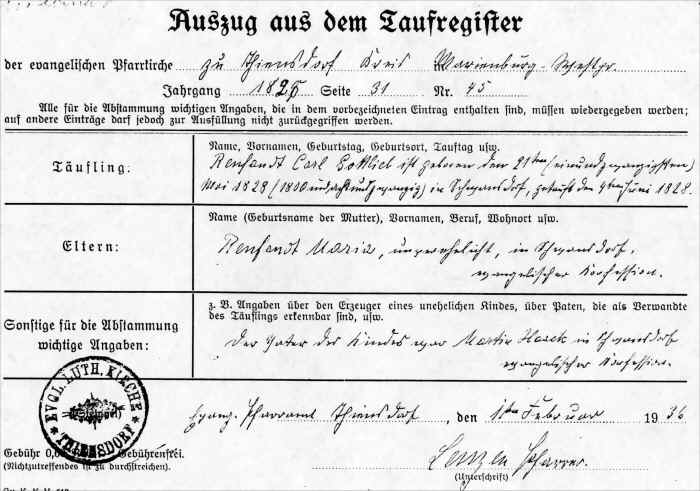 Auszug aus dem Taufregister
der evangelischen Pfarrkirche zu Thiensdorf Kreis Marienburg-Westpr.
Jahrgang 1828 Seite 31 Nr. 45
Alle für die Abstammung wichtigen Angaben, die in dem vorbezeichneten Eintrag enthalten sind, müssen wiedergegeben werden;
auf andere Einträge darf jedoch zur Ausfüllung nicht zurückgegriffen werden.
Name, Vornamen, Geburtstag, Geburtsort, Tauftag usw.
Täufling:
Renfandt Carl Gottlieb ist geboren den 21ten (einundzwanzigsten)
Mai 1828 (1800 undachtundzwanzig) in Schwansdorf, getauft den 9ten Juni 1828.
Name (Geburtsname der Mutter), Vornamen, Beruf, Wohnort usw.
Eltern:
Renfandt Maria, unverehelicht, in Schwansdorf,
evangelischer Konfession.
z. B. Angaben über den Erzeuger eines unehelichen Kindes, über Paten, die als Verwandte
des Täuflings erkennbar sind, usw.
Sonstige für die Abstammung
wichtige Angaben:
Der Vater des Kindes war Martin Haack in Schwansdorf
evangelischer Konfession.
EVGL. LUTH. KIRCHE
(Stempel)
* THIENSDORF *
Evang. Pfarramt Thiensdorf, den 1ten Februar 1936
Gebühr Gebührenfrei.
(Nichtzutreffendes ist zu durchstreichen).
Pfarrer.
(Unterschrift)